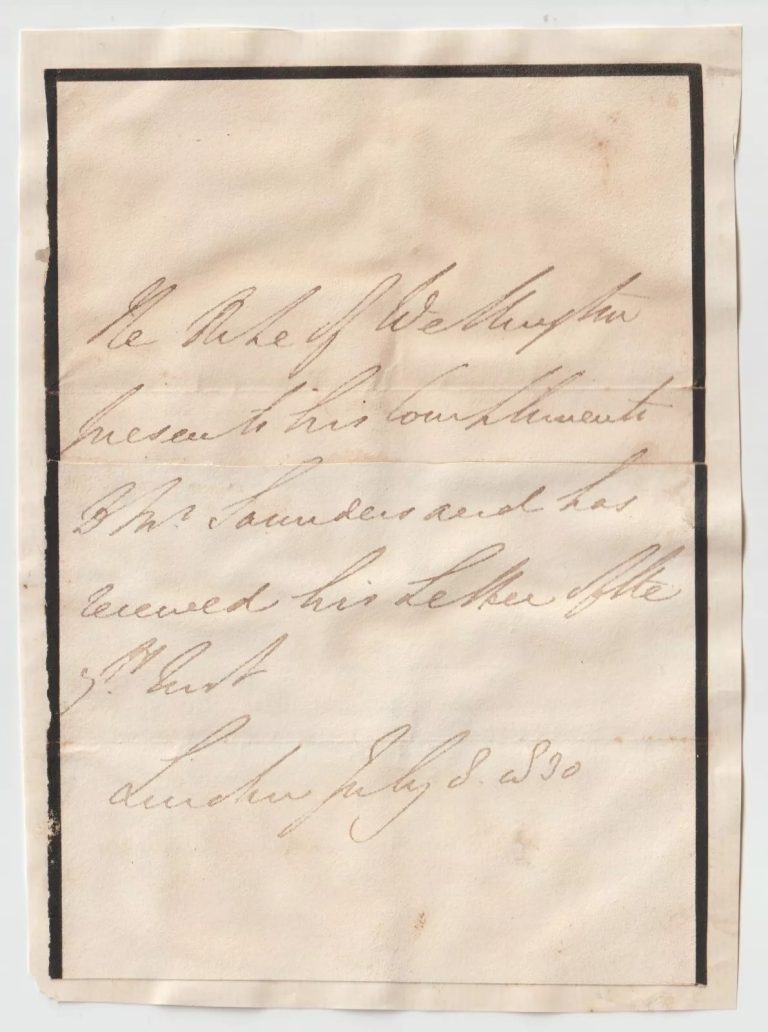 The Duke of Wellington
presents his Compliments
to Mr. Saunders and has
received his Letter of the
7th Inst
London July 8. 1830